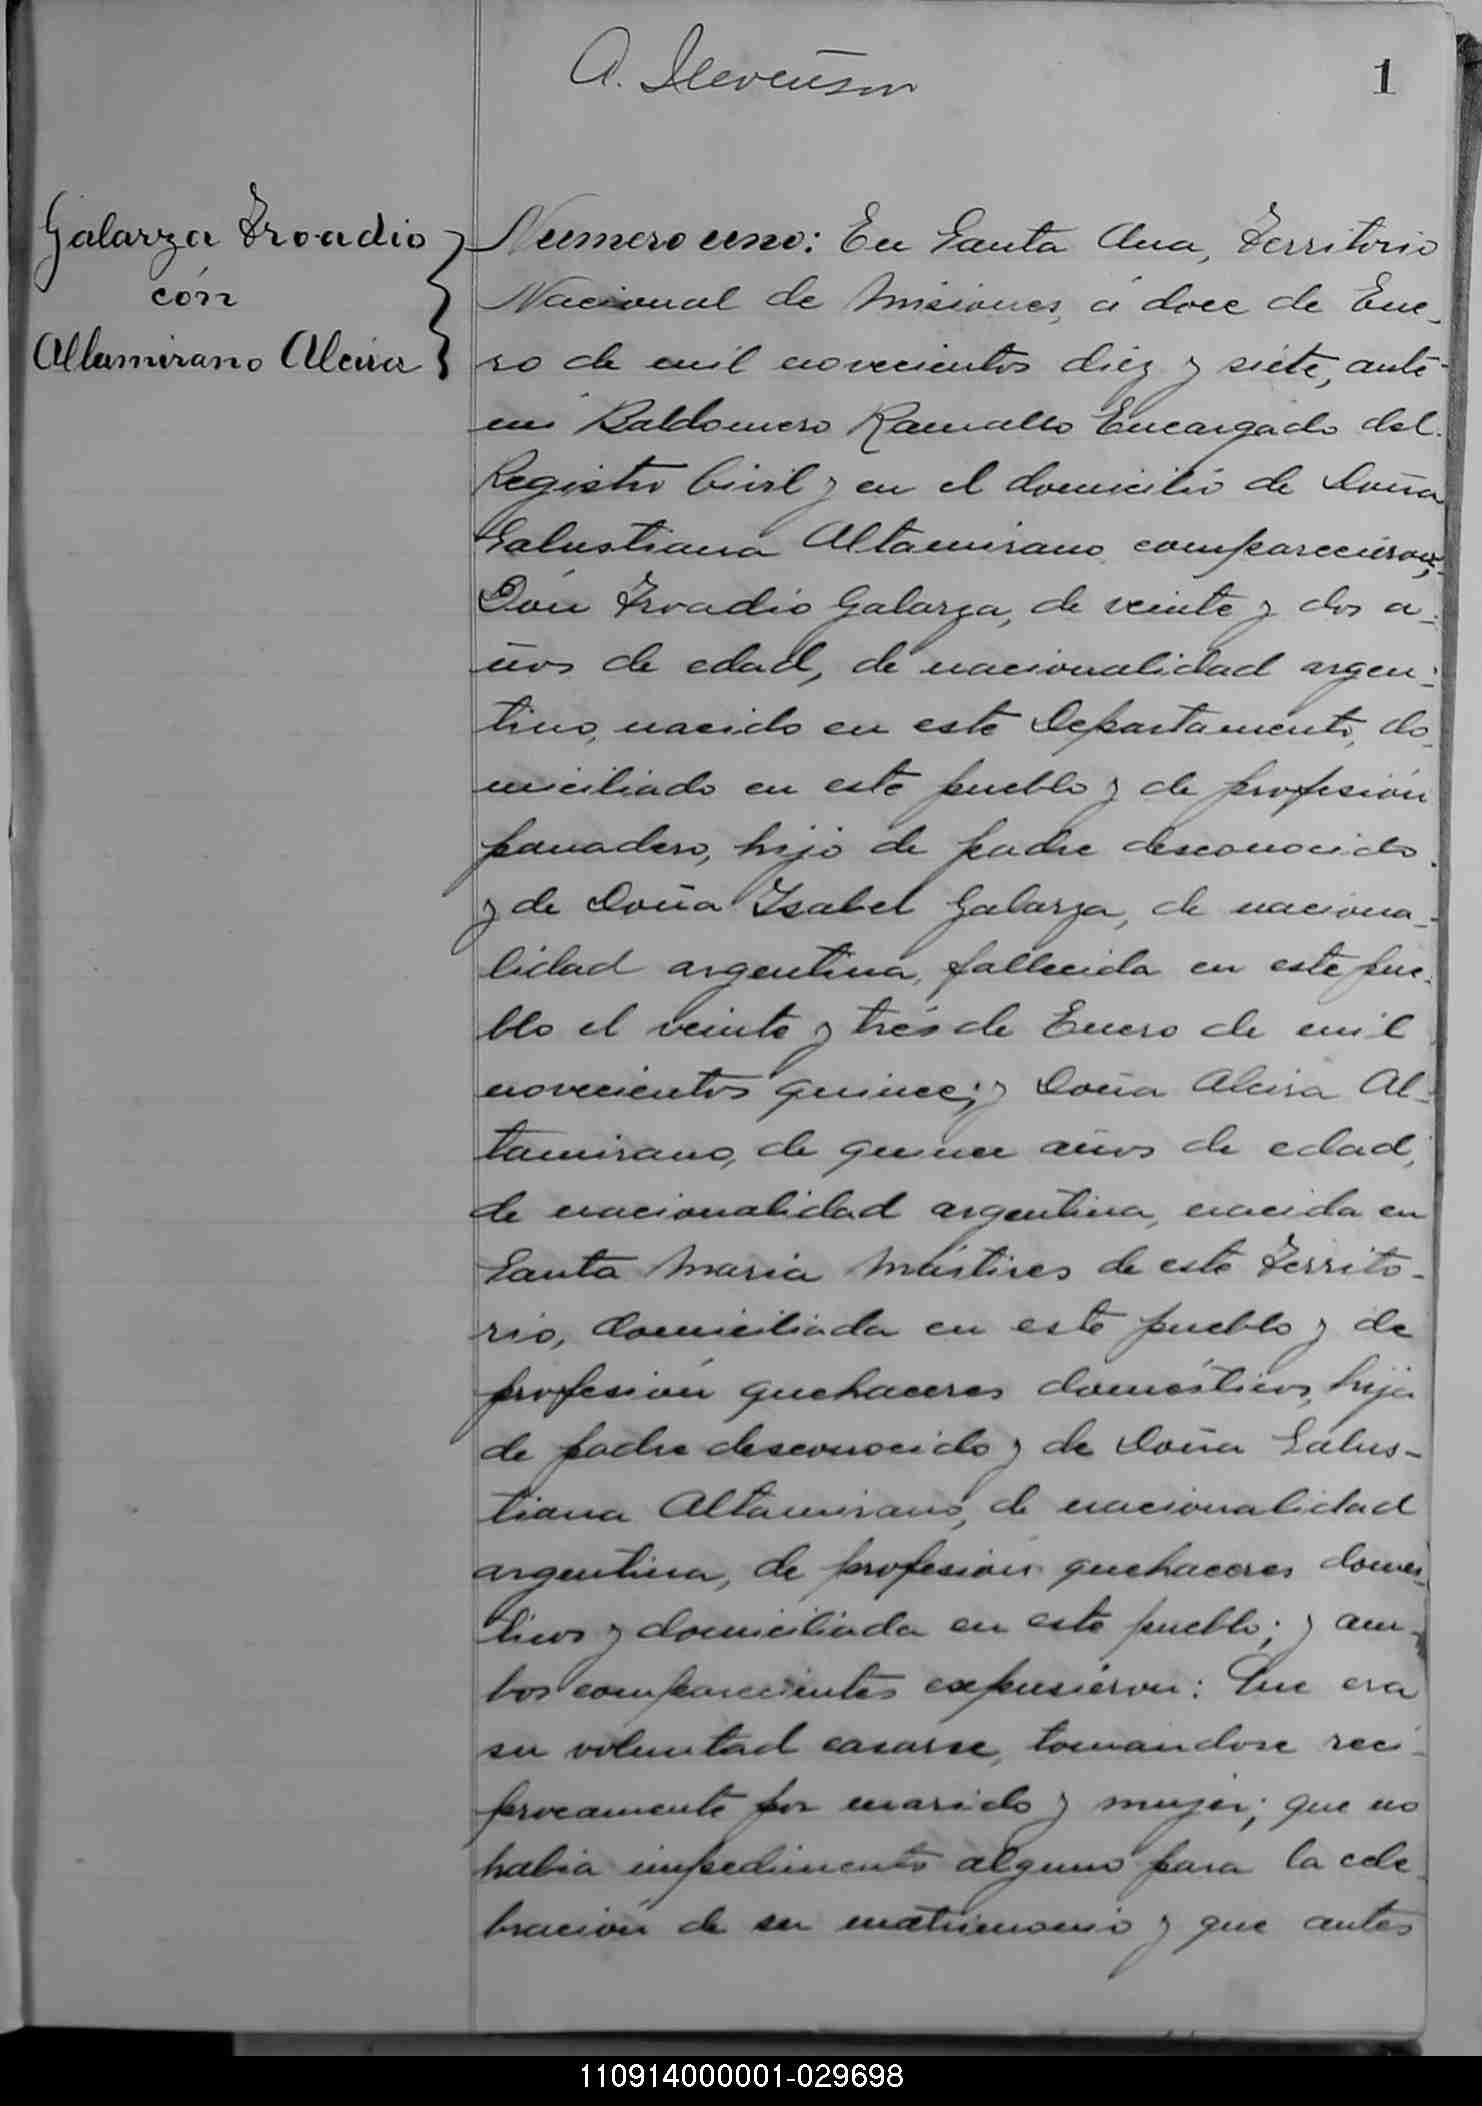 A. Stevenson
1
Galarza Troadio
cón
Altamirano Alcira
Numero uno: En Santa Ana, Territorio
Nacional de Misiones, á doce de Ene-
ro de mil novecientos diez y siete, ante
mi Baldomero Ramallo Encargado del
Registro Civil y en el domicilió de Doña
Salustiana Altamirano comparecieron,
Dón Troadio Galarza, de veinte y dos a-
ños de edad, de nacionalidad argen-
tino, nacido en este Departamento, do-
miciliado en este pueblo y de profesión
panadero, hijo de padre desconocido
y de Doña Isabel Galarza, de naciona-
lidad argentina, fallecida en este pue-
blo el veinte y trés de Enero de mil
novecientos quince; y Doña Alcira Al-
tamirano, de quince años de edad,
de nacionalidad argentina, nacida en
Santa Maria Mártires de este Territo-
rio, domiciliada en este pueblo y de
profesión quehaceres domésticos, hija
de padre desconocido y de Doña Salus-
tiana Altamirano, de nacionalidad
argentina, de profesión quehaceres domés-
ticos y domiciliada en este pueblo; y am-
bos comparecientes expusiéron: Que era
su voluntad casarse, tomandose reci-
procamente por marido y mujer; que no
habia impedimento alguno para la cele-
bración de su matrimonio y que antes
110914000001-029698